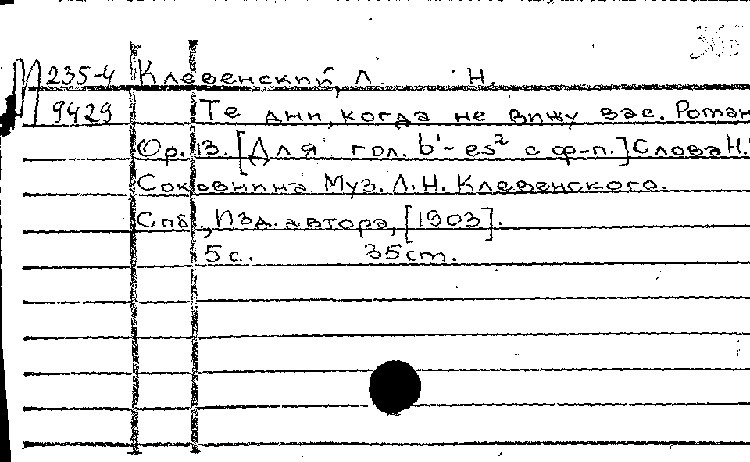 М 235-4 Клевенский, Л. Н.
9429 Те дни, когда не вижу вас. Роман
Ор. 13. [Для гол. b¹- es² с ф-п.] Слова Н.
Соковнина Муз. Л. Н. Клевенского.
Спб, Изд. автора, [1903].
5 с. 35 cm.